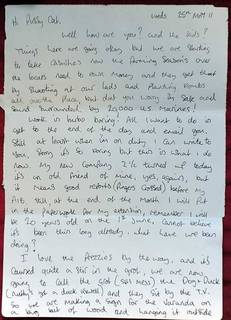 Hi Pussy Cat, Weds 25th MAY 11
Well how are you? and the kids?
Things here are going okay but we are starting
to take casualties now the farming season's over
the locals need to earn money and they get that
by shooting at our lads and planting bombs
all over the place, but dont you worry Im safe and
sound surrounded by 20,000 U.S. Marines!
Work is turbo boring! All I want to do is
get to the end of the day and email you.
Still at least when Im on duty I can write to
you, Sorry its so boring but this is what I do
now. My new Company 2I/C turned up today
it's an old friend of mine, yes, again, but
it means good reports (fingers crossed) before my
at the end of the month I will put
in the paperwork for my extention, remember I will
be 20 years old on the June, cannot believe
it's been this long already, what have we been
doing?
I love the Freezies by the way, and it's
caused quite a stir in the we are now
going to call the the Dog + Duck
a duck as well) and they sit by the T.V.
So we are making a sign for the Varanda on
a big bit of wood and hanging it outside